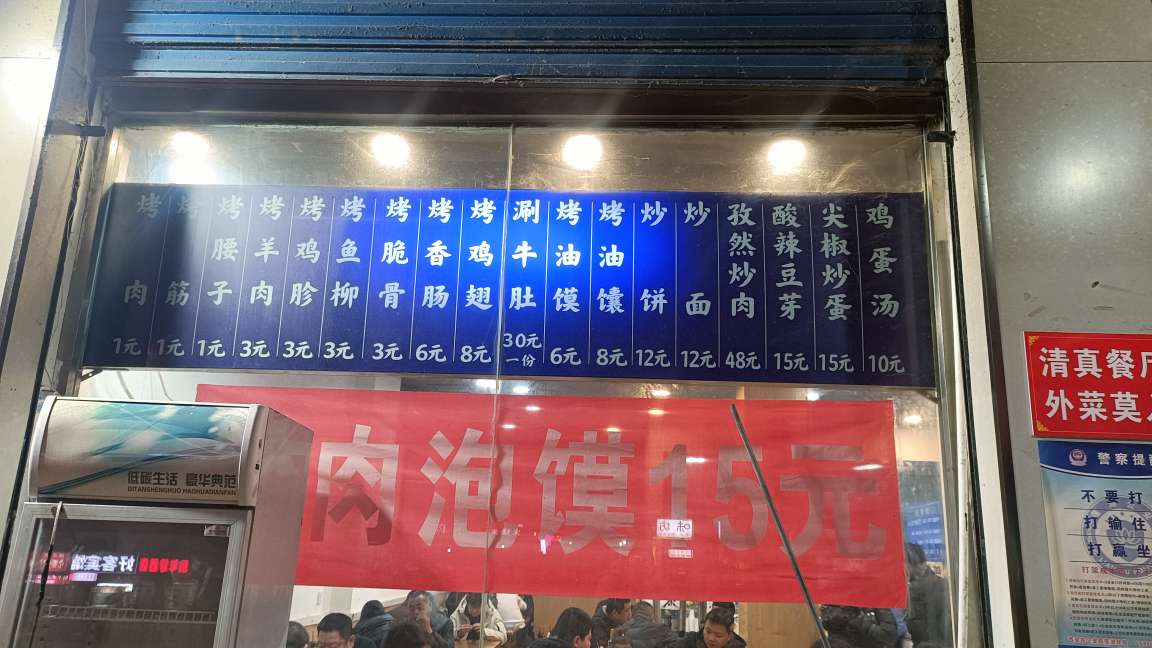 烤肉 1元
烤筋 1元
烤腰子 1元
烤羊肉 3元
烤鸡胗 3元
烤鱼柳 3元
烤脆骨 3元
烤香肠 6元
烤鸡翅 8元
涮牛肚 30元一份
烤油馍 6元
烤油馕 8元
炒饼 12元
炒面 12元
孜然炒肉 48元
酸辣豆芽 15元
尖椒炒蛋 15元
鸡蛋汤 10元
肉泡馍15元
清真餐厅
外菜莫入
低碳生活 豪华典范
DITANSHENGHUO HAOHUADIANFAN
好客宾馆
味坊
警察提醒
不要打
打输住
打赢坐